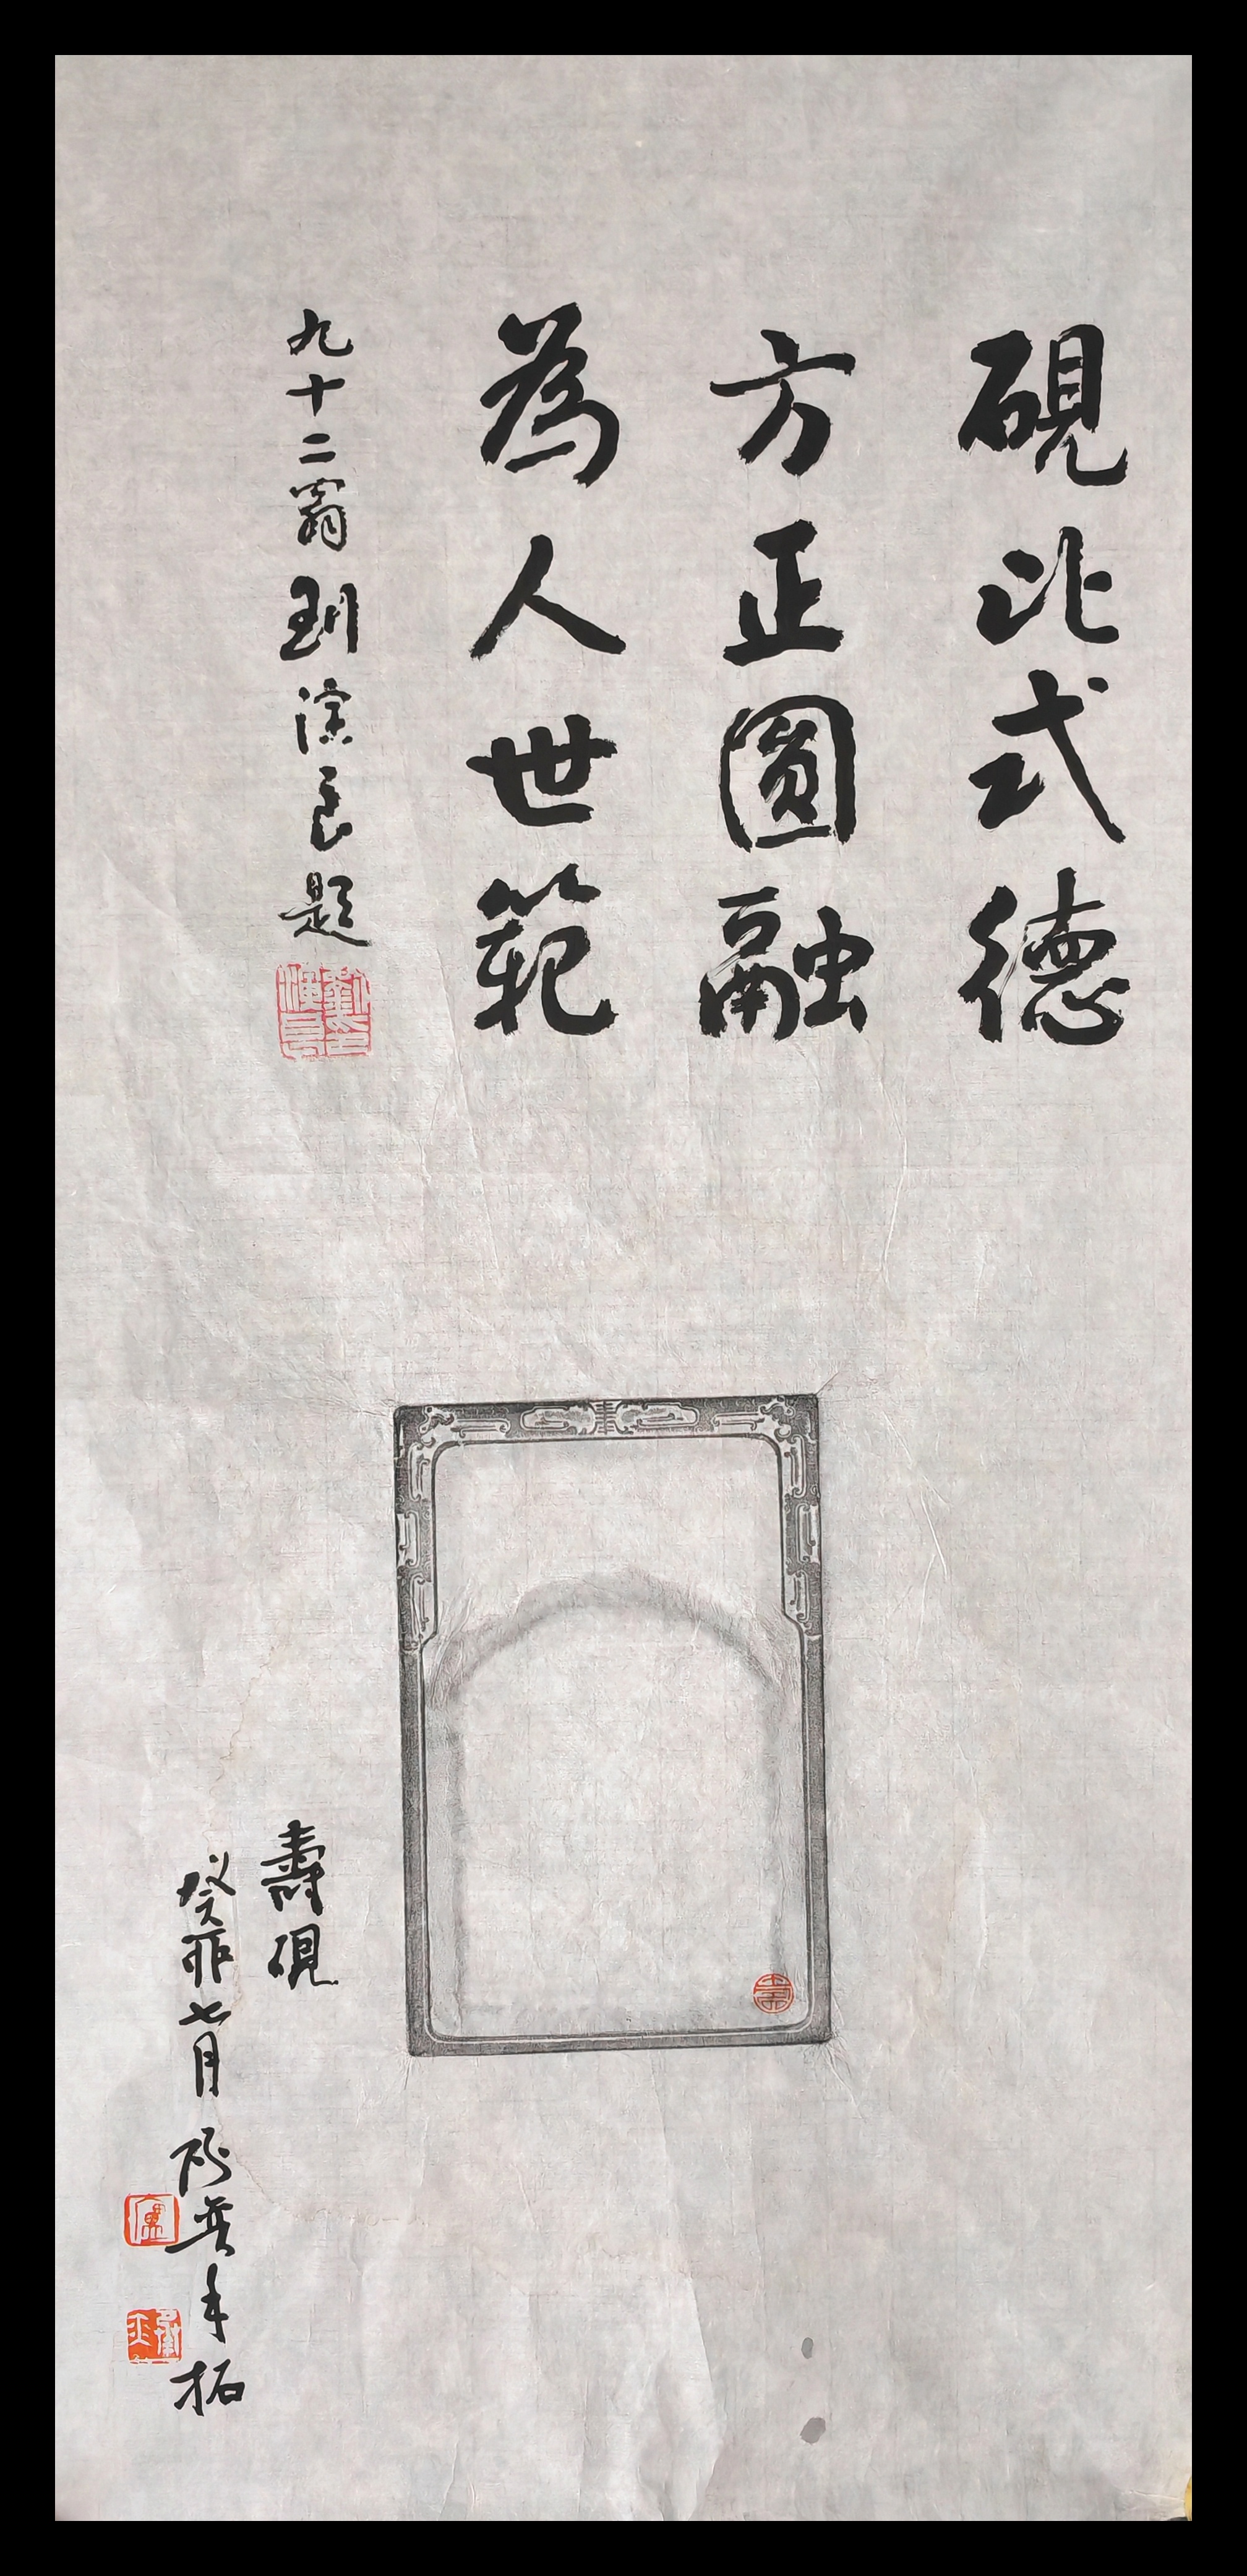 硯式德
方正圓融
為人世範
九十二翁劉演良題
劉印演良
壽硯
癸卯七月手拓